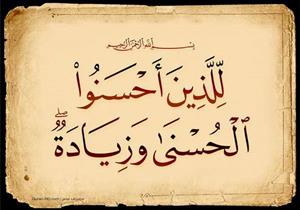 بسم الله الرحمن الرحيم
لِّلَّذِينَ أَحْسَنُوا۟
ٱلْحُسْنَىٰ وَزِيَادَةٌۖ